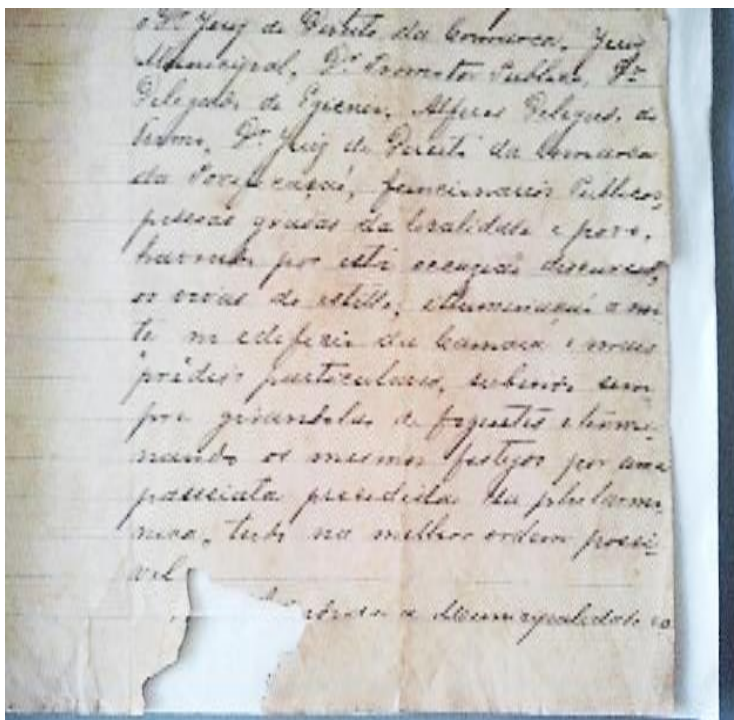 o Dr. Juiz de Direito da Comarca, Juiz
Municipal, Dr. Promotor Publico, Dr.
Delegado de Hygiene, Alferes Delegado do
Termo, Dr. Juiz de Direito da Comarca
da, funccionarios Publicos,
pessoas gradas da localidade e povo,
havendo por esta occazião discursos,
os vivas do estillo, illuminação a noi
te no edeficio da Camara e mais
predios particulares, subindo sem
pre girandolas de foguetes e termi
nando os mesmos festejos por uma
passeiata precedida da philarmo
nica, tudo na melhor ordem possi
vel
a Municipalidade